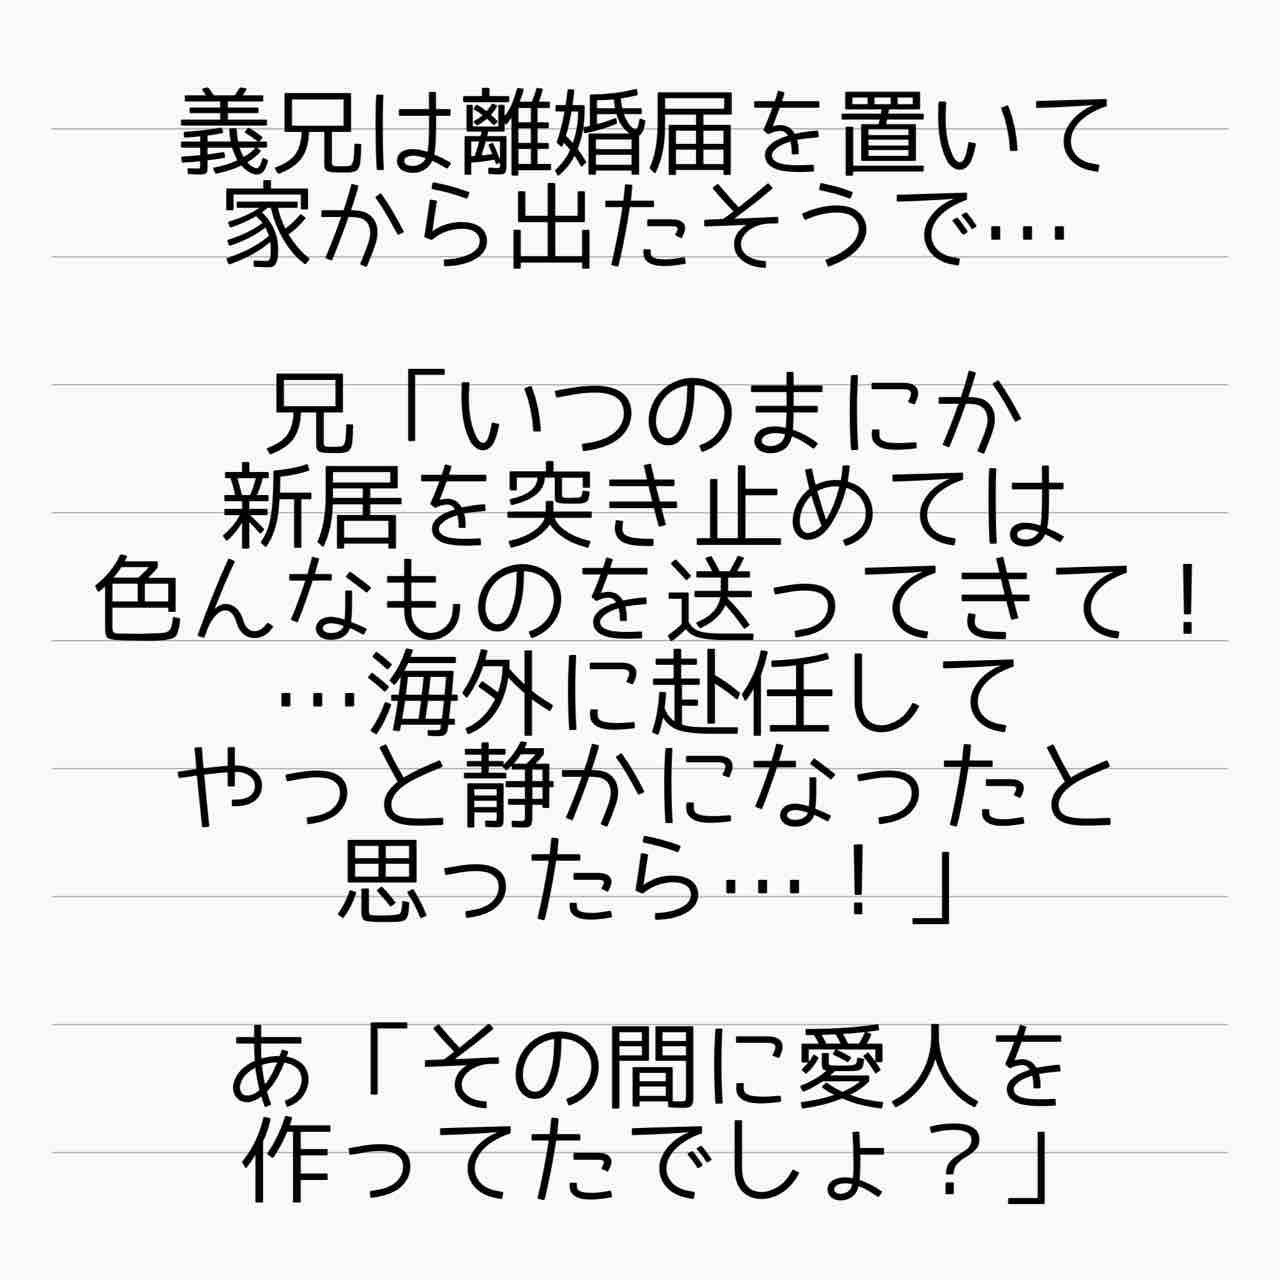 義兄は離婚届を置いて
家から出たそうで…
兄「いつのまにか
新居を突き止めては
色んなものを送ってきて！
…海外に赴任して
やっと静かになったと
思ったら…！」
あ「その間に愛人を
作ってたでしょ？」